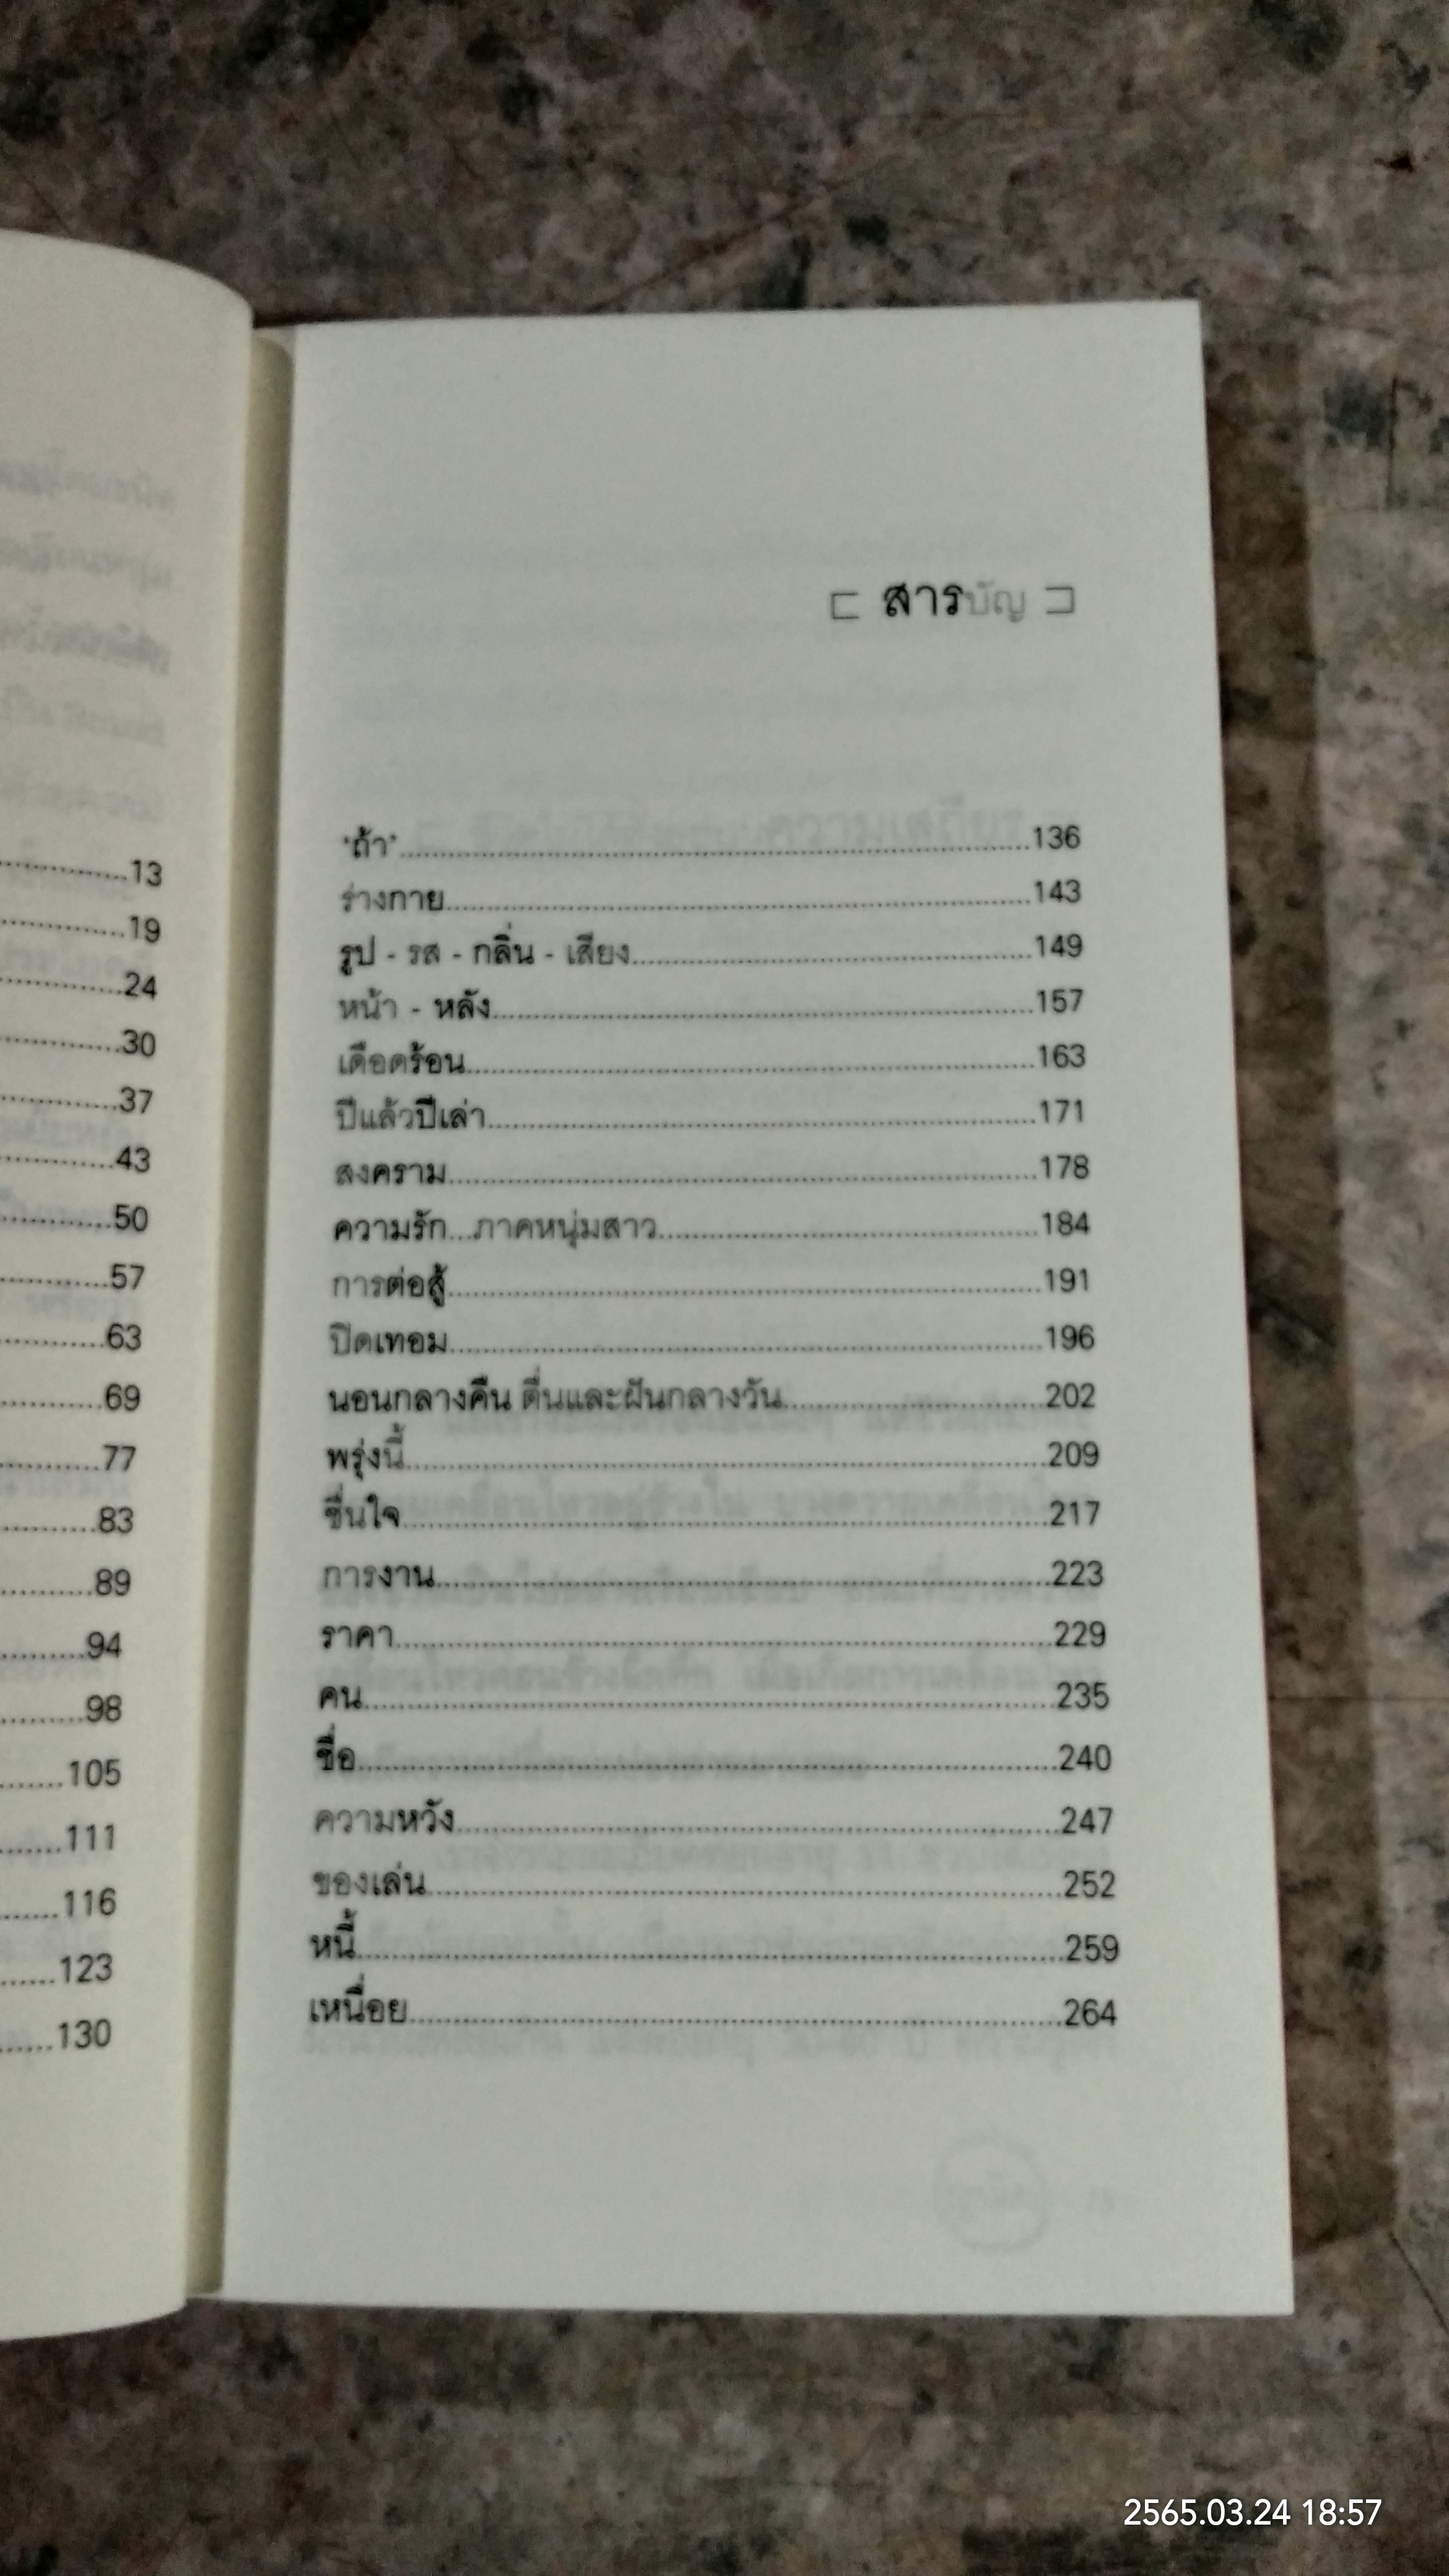 13
19
24
30
37
43
50
57
63
69
77
83
89
94
98
105
111
116
123
130
สารบัญ
'ถ้า'..........136
ร่างกาย..........143
รูป - รส - กลิ่น - เสียง..........149
หน้า - หลัง..........157
เดือดร้อน..........163
ปีแล้วปีเล่า..........171
สงคราม..........178
ความรัก...ภาคหนุ่มสาว..........184
การต่อสู้..........191
ปิดเทอม..........196
นอนกลางคืน ตื่นและฝันกลางวัน..........202
พรุ่งนี้..........209
ชื่นใจ..........217
การงาน..........223
ราคา..........229
คน..........235
ชื่อ..........240
ความหวัง..........247
ของเล่น..........252
หนี้..........259
เหนื่อย..........264
2565.03.24 18:57